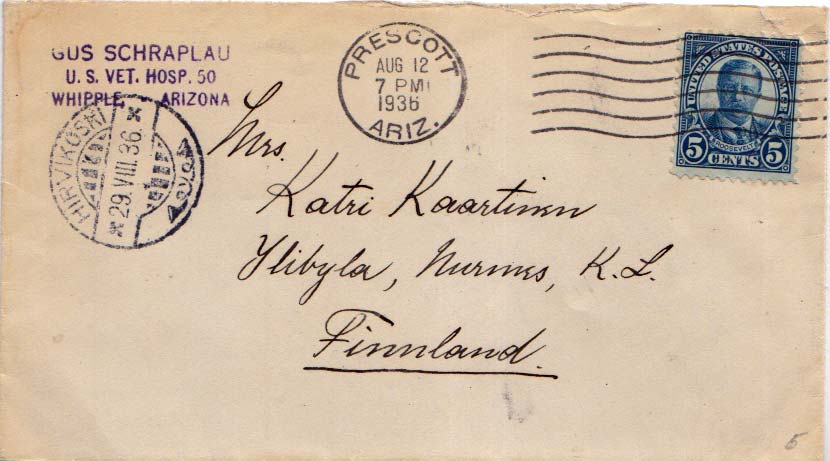 GUS SCHRAPLAU
U. S. VET. HOSP. 50
WHIPPLE, ARIZONA
PRESCOTT
AUG 12
7 PM
1936
ARIZ.
UNITED STATES POSTAGE
ROOSEVELT
5 CENTS 5
HIRVIKOSKI
* 29.VIII.36. *
Mrs.
Katri Kaartinen
Ylibyla, Nurmes, K.L.
Finnland.
5